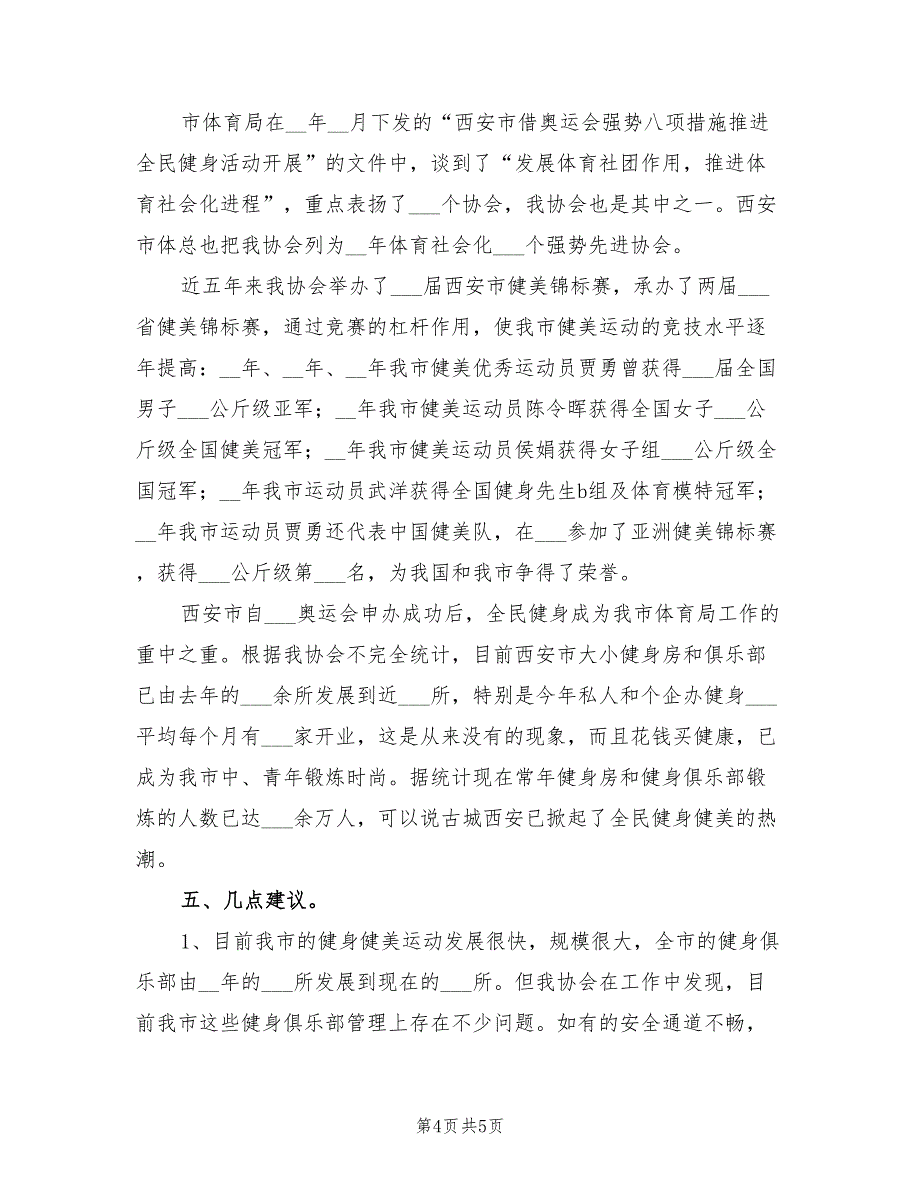 市体育局在__年__月下发的“西安市借奥运会强势八项措施推进
全民健身活动开展”的文件中，谈到了“发展体育社团作用，推进体
育社会化进程”，重点表扬了___个协会，我协会也是其中之一。西安
市体总也把我协会列为__年体育社会化___个强势先进协会。
近五年来我协会举办了___届西安市健美锦标赛，承办了两届___
省健美锦标赛，通过竞赛的杠杆作用，使我市健美运动的竞技水平逐
年提高：__年、__年、__年我市健美优秀运动员贾勇曾获得___届全国
男子___公斤级亚军；__年我市健美运动员陈令晖获得全国女子___公
斤级全国健美冠军；__年我市健美运动员侯娟获得女子组___公斤级全
国冠军；__年我市运动员武洋获得全国健身先生b组及体育模特冠军；
__年我市运动员贾勇还代表中国健美队，在___参加了亚洲健美锦标赛
，获得___公斤级第___名，为我国和我市争得了荣誉。
西安市自___奥运会申办成功后，全民健身成为我市体育局工作的
重中之重。根据我协会不完全统计，目前西安市大小健身房和俱乐部
已由去年的___余所发展到近___所，特别是今年私人和个企办健身___
平均每个月有___家开业，这是从来没有的现象，而且花钱买健康，已
成为我市中、青年锻炼时尚。据统计现在常年健身房和健身俱乐部锻
炼的人数已达___余万人，可以说古城西安已掀起了全民健身健美的热
潮。
五、几点建议。
1、目前我市的健身健美运动发展很快，规模很大，全市的健身俱
乐部由__年的___所发展到现在的___所。但我协会在工作中发现，目
前我市这些健身俱乐部管理上存在不少问题。如有的安全通道不畅，
第4页 共5页